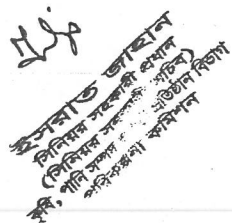 ইসরাত জাহান
সিনিয়র সহকারী প্রধান
(সিনিয়র সহকারী সচিব)
কৃষি, পানি সম্পদ প্রতিষ্ঠান বিভাগ
পরিকল্পনা কমিশন